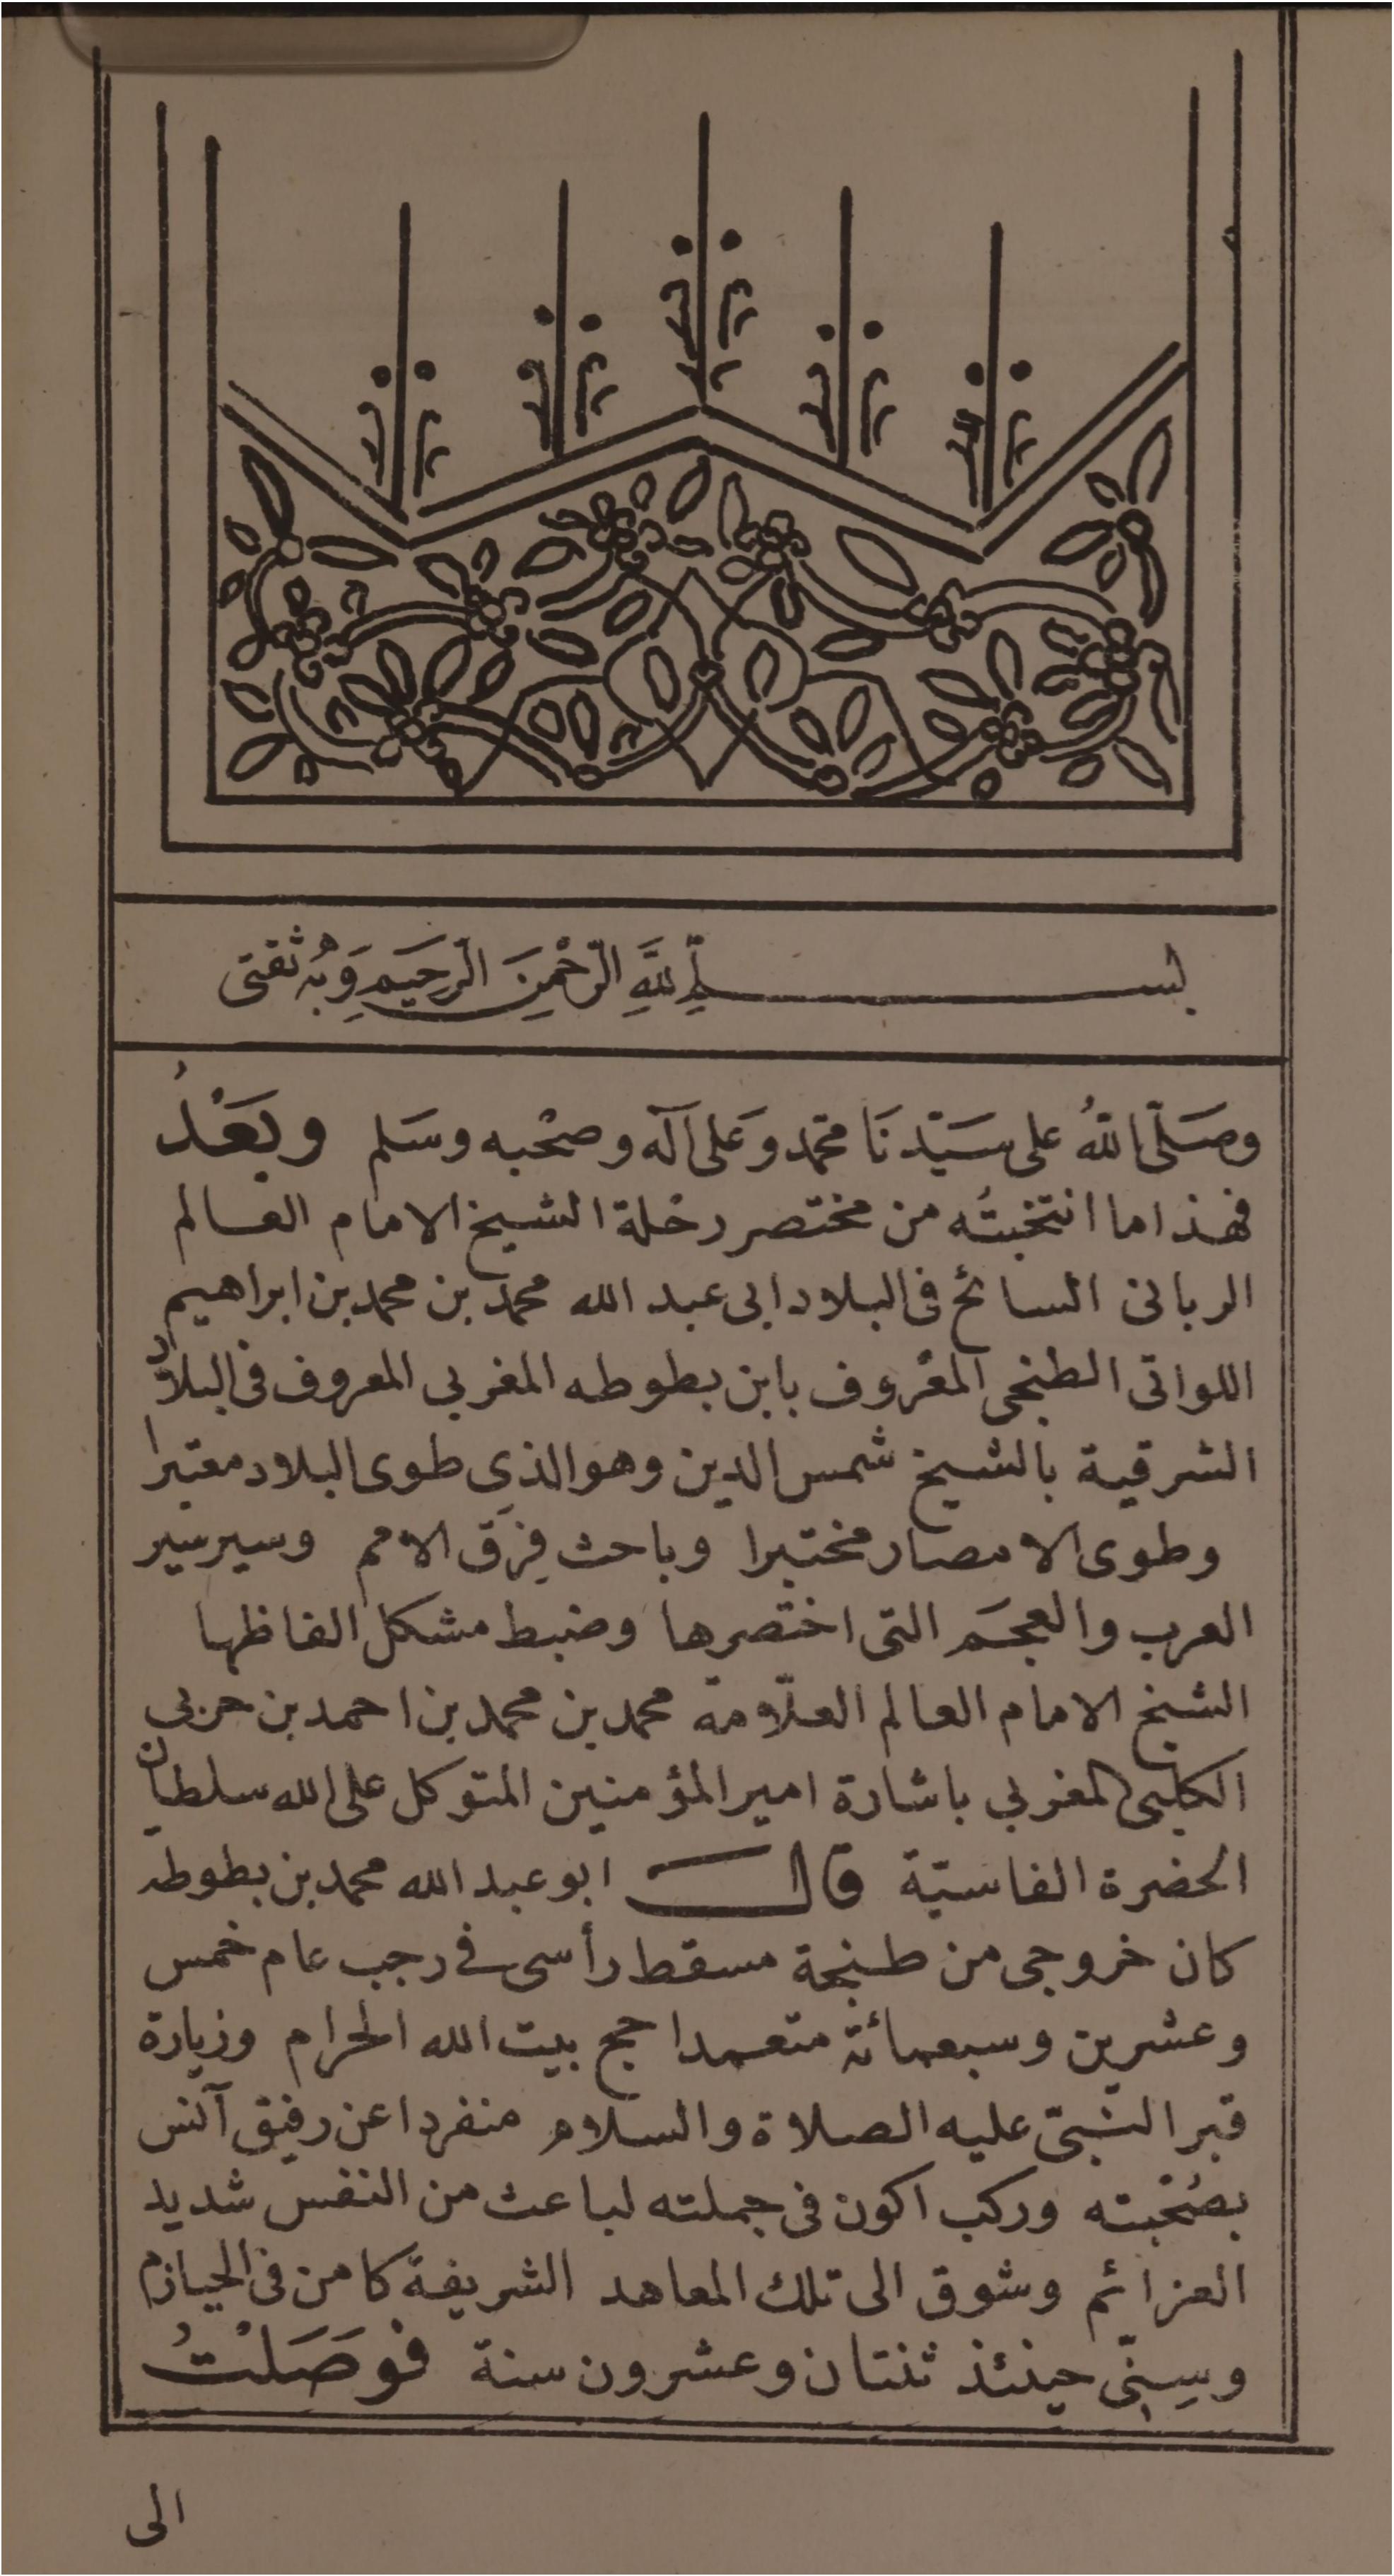 بسم لله الرَّحْمنَ الَرحيَمِ وَبُه ثقتى
وصَلّى اللهُ على سَيّد نَا محّمد وَعَلى آله وصحْبه وسَلم وبَعْدُ
فهذا ما انتخبتُه من مختصر رحْلة الشيخ الامام العالم
الربانى السائح فى البلاد ابى عبد الله محمد بن محمد بن ابراهيم
اللواتى الطنجى المعْروف بابن بطوطه المغربى المعروف فى البلاد
الشرقية بالشيخ شمس الدين وهو الذى طوى البلاد معتبرا
وطوى الامصار مختبرا وباحث فِرَق الامم وسير سير
العرب والعجَم التى اختْصرها وضبط مشكل الفاظها
الشيخ الامام العالم العلّامة محمد بن محمد بن احمد بن حزبى
الكلبى المغربى باشارة امير المؤمنين المتوكل على الله سلطان
الحضرة الفاسيّة قال ابو عبد الله محمد بن بطوطه
كان خروجى من طنجة مسقط رأسى فى رجب عام خمس
وعشرين وسبعمائة متعمدا حج بيت الله الحرام وزيارة
قبر النّبىّ عليه الصلاة والسلام منفردا عن رفيق آنس
بصُحْبته وركب اكون فى جملته لباعث من النفس شديد
العزائم وشوق الى تلك المعاهد الشريفة كامن فى الحيازم
وسِنّى حينئذ ثنتان وعشرون سنة فوصَلْتُ
الى